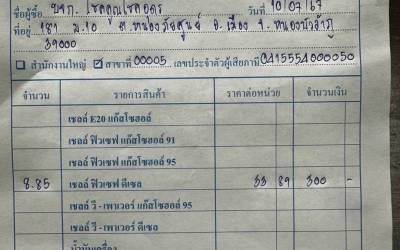 ชื่อผู้ซื้อ หจก. โชคคูณโชคอุดร วันที่ 10/07/67
ที่อยู่ 187 ม.10 ต.หนองภัยศูนย์ อ.เมือง จ.หนองบัวลำภู
39000
สำนักงานใหญ่ ☑ สาขาที่ 00005 เลขประจำตัวผู้เสียภาษี 0415554000050
จำนวน รายการสินค้า ราคาต่อหน่วย จำนวนเงิน
เชลล์ E20 แก๊สโซฮอล์
เชลล์ ฟิวเซฟ แก๊สโซฮอล์ 91
เชลล์ ฟิวเซฟ แก๊สโซฮอล์ 95
8.85 เชลล์ ฟิวเซฟ ดีเซล 33 89 300 -
เชลล์ วี - เพาเวอร์ แก๊สโซฮอล์ 95
เชลล์ วี - เพาเวอร์ ดีเซล
น้ำมันเครื่อง